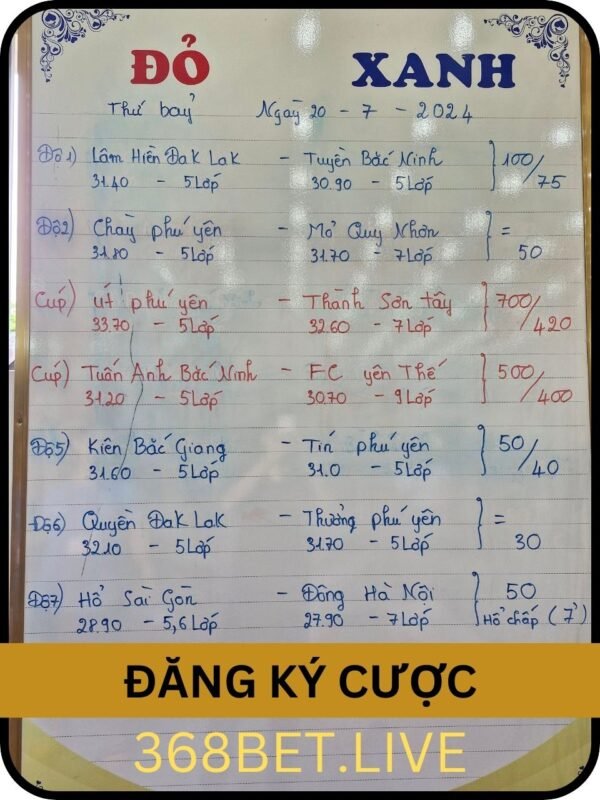 ĐỎ XANH
Thứ bảy Ngày 20 - 7 - 2024
Độ1) Lâm Hiền Đak Lak - Tuyền Bắc Ninh } 100/75
31.40 - 5 Lớp 30.90 - 5 Lớp
Độ2) Chạy phú yên - Mỏ Quy Nhơn } = 50
31.80 - 5 Lớp 31.70 - 7 Lớp
Cúp) út phú yên - Thành Sơn tây } 700/420
33.70 - 5 Lớp 32.60 - 7 Lớp
Cúp) Tuấn Anh Bắc Ninh - FC yên Thế } 500/400
31.20 - 5 Lớp 30.70 - 9 Lớp
Độ5) Kiên Bắc Giang - Tín phú yên } 50/40
31.60 - 5 Lớp 31.0 - 5 Lớp
Độ6) Quyền Đak Lak - Thưởng phú yên } = 30
32.10 - 5 Lớp 31.70 - 5 Lớp
Độ7) Hổ Sài Gòn - Đông Hà Nội } 50
28.90 - 5,6 Lớp 27.90 - 7 Lớp Hổ chấp (7')
ĐĂNG KÝ CƯỢC
368BET.LIVE